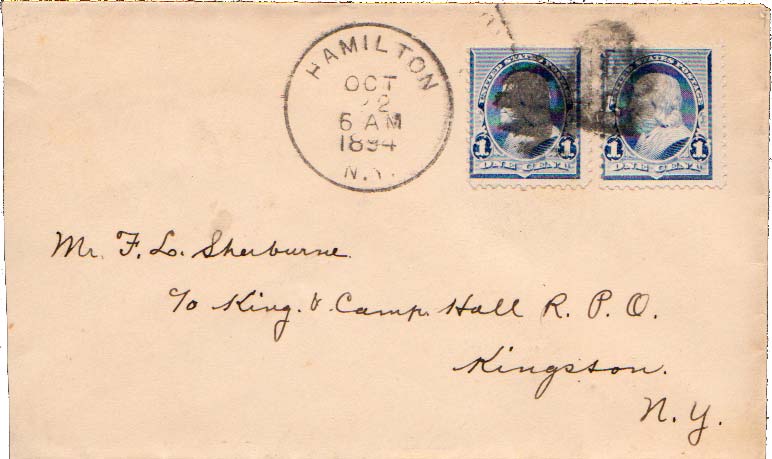 HAMILTON
OCT
22
6 AM
1894
N.Y.
UNITED STATES POSTAGE
1 ONE CENT 1
UNITED STATES POSTAGE
1 ONE CENT 1
Mr. F. L. Sherburne.
c/o King. & Camp. Hall R. P. O.
Kingston.
N. Y.